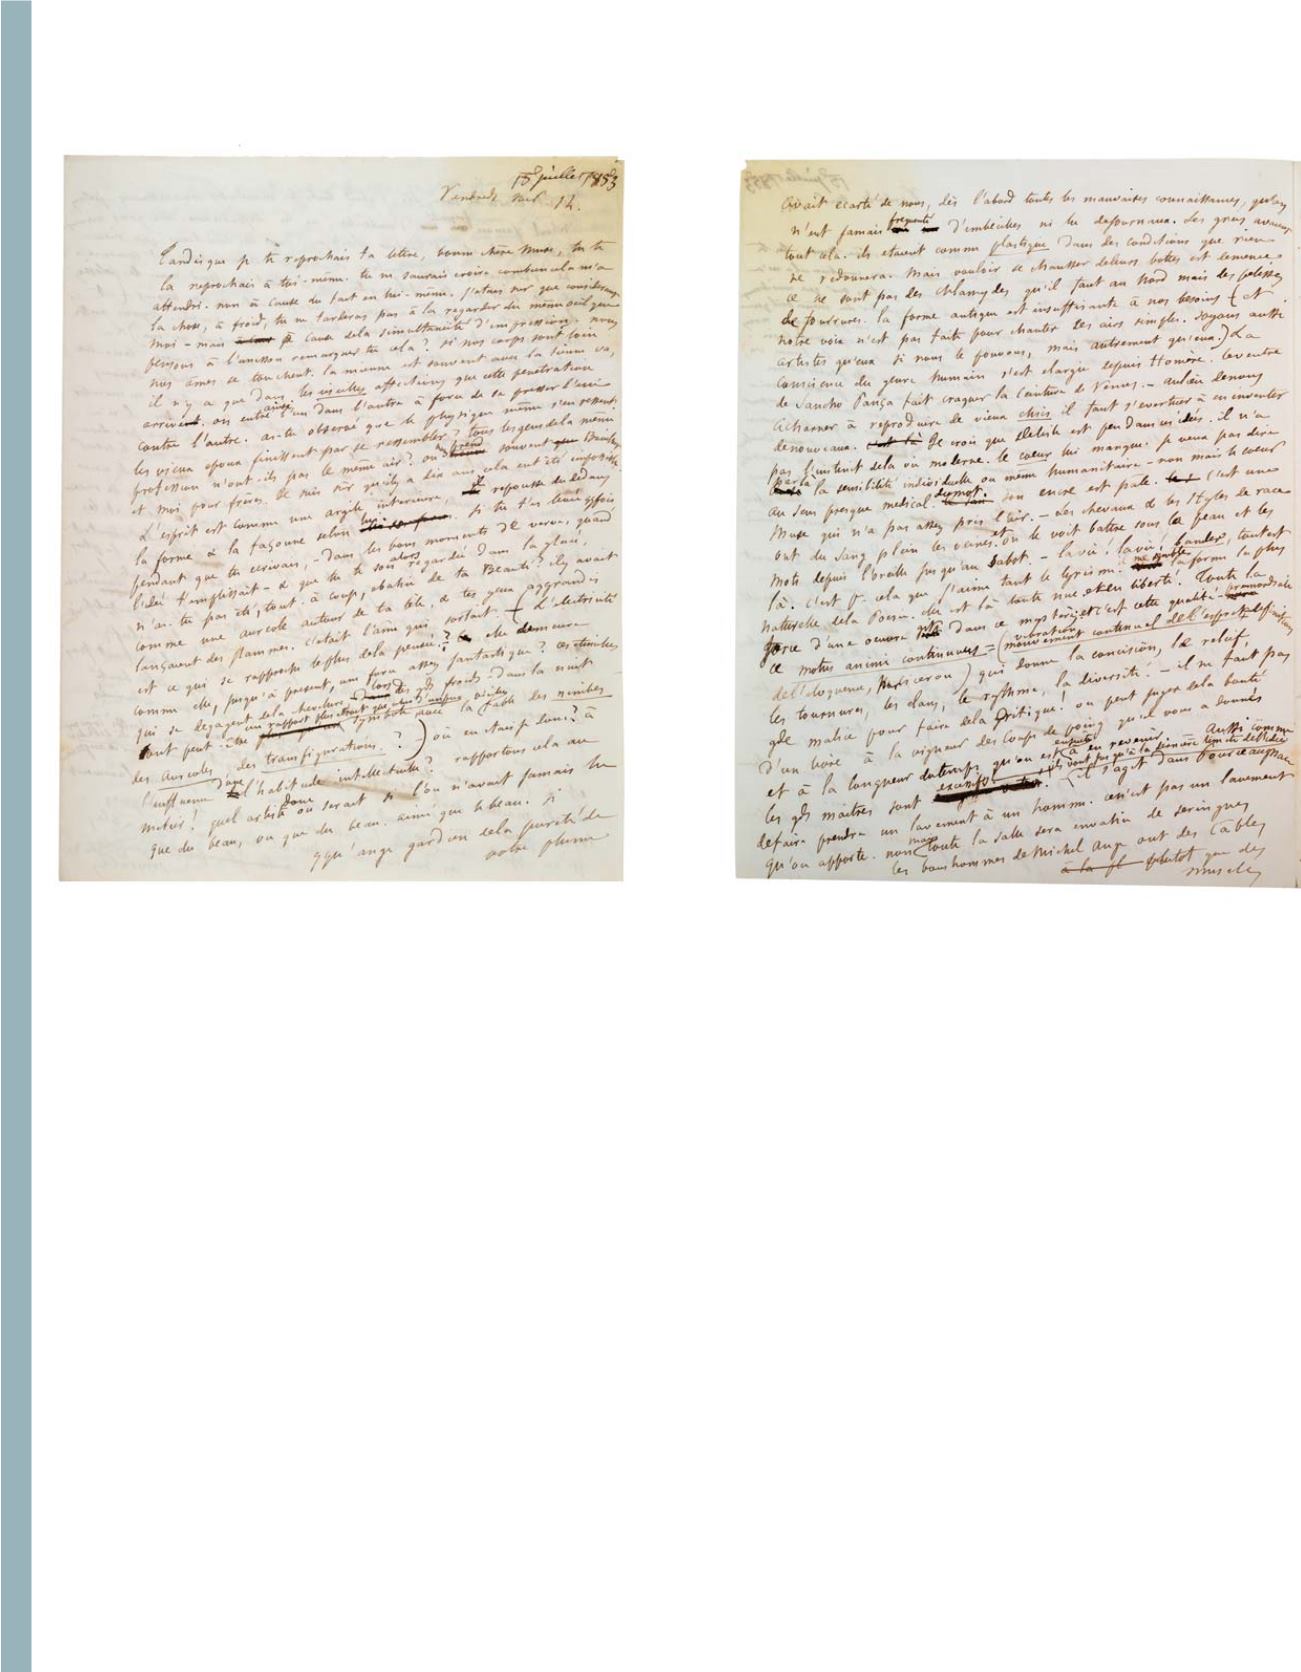 15 juillet 1853
Vendredi soir. 1 h.
Tandis que je te reprochais ta lettre, bonne chère Muse, tu te
la reprochais à toi-même. tu ne saurais croire combien cela m'a
attendri. non à cause du fait en lui-même. j'étais sûr que considérant
la chose, à froid, tu ne tarderas pas à la regarder du même oeil que
moi - mais à cause de la simultanéité d'impression. nous
pensons à l'unisson remarques-tu cela? si nos corps sont loin
nos âmes se touchent. la mienne est souvent avec la tienne va,
il n'y a que dans les vieilles affections que cette pénétration
arrive. on entre ainsi l'un dans l'autre à force de se presser l'un
contre l'autre. as-tu observé que le physique même s'en ressent
les vieux époux finissent par se ressembler? tous les gens de la même
profession n'ont-ils pas le même air? on nous prend souvent Bouilhet
et moi pour frères. Je suis sûr qu'il y a dix ans cela eut été impossible.
L'esprit est comme une argile intérieure, il repousse du dedans
la forme & la façonne selon lui. si tu t'es levée qqfois
pendant que tu écrivais, - dans les bons moments de verve, quand
l'idée t'emplissait - & que tu te sois alors regardée dans la glace,
n'as-tu pas été, tout-à-coup, ébahie de ta Beauté? il y avait
comme une auréole autour de ta tête, & tes yeux aggrandis
lançaient des flammes. C'était l'âme qui sortait. - L'électricité
est ce qui se rapproche le plus de la pensée? elle demeure
comme elle, jusqu'à présent, une force assez fantastique? ces étincelles
qui se dégagent de la chevelure lors des gds froids, dans la nuit
ont peut-être un rapport plus étroit que avec la fable des nimbes
des Auréoles, des transfigurations?) où en étais-je donc? à
l'influence d'une habitude intellectuelle? rapportons cela au
métier! quel artiste donc on serait si l'on n'avait jamais lu
que du beau, vu que du beau. aimé que le beau. si
qqu'ange gardien de la pureté de
notre plume
avait écarté de nous, dès l'abord toutes les mauvaises connaissances, qu'on
n'eut jamais fréquenté d'imbéciles ni lu de journaux. Les grecs avaient
tout cela. ils étaient comme plastique dans des conditions que rien
ne redonnera. Mais vouloir se chausser de leurs bottes est démence
ce ne sont pas des chlamydes qu'il faut au Nord mais des pelisses
de fourrures. la forme antique est insuffisante à nos besoins & et
notre voix n'est pas faite pour chanter ces airs simples. Soyons aussi
artistes qu'eux si nous le pouvons, mais autrement qu'eux.) La
conscience du genre humain s'est élargie depuis Homère. le ventre
de Sancho Pança fait craquer la Ceinture de Vénus. - au lieu de nous
acharner à reproduire de vieux chics il faut s'évertuer à en inventer
de nouveaux. Je crois que Delisle est peu dans ces idées. il n'a
pas l'instinct de la vie moderne. le coeur lui manque. je ne veux pas dire
par là la sensibilité individuelle ou même humanitaire - non mais le coeur
au sens presque médical du mot. son encre est pâle. c'est une
Muse qui n'a pas assez pris l'air. - Les chevaux & les styles de race
ont du sang plein les veines. et on le voit battre sous la peau et les
mots depuis l'oreille jusqu'au sabot. - la vie! la vie! bander, tout est
là. C'est p. cela que j'aime tant le lyrisme. il me semble la forme la plus
naturelle de la Poésie. elle est là toute nue et en liberté. Toute la
force d'une oeuvre gît dans ce mystère, et c'est cette qualité primordiale
ce motus animi continuus = (vibration, mouvement continuel de l'esprit définition
de l'éloquence, par ciceron) qui donne la concision, le relief,
les tournures, les élans, le rythme, la diversité. - il ne faut pas
gde malice pour faire de la Critique! on peut juger de la bonté
d'un livre à la vigueur des Coups de poing qu'il vous a donnés
et à la longueur de temps qu'on est ensuite à en revenir. - Aussi comme
les gds maîtres sont excessifs! ils vont jusqu'à la dernière limite de l'idée
(il s'agit dans Pourceaugnac
de faire prendre un lavement à un homme. ce n'est pas un lavement
qu'on apporte. non mais toute la salle sera envahie de seringues
les bons hommes de Michel Ange ont des Cables
plutôt que des
muscles